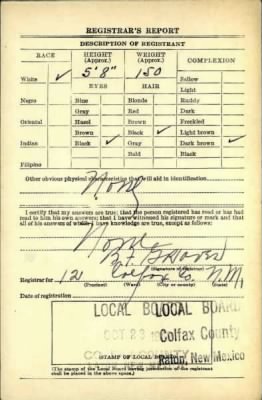 REGISTRAR'S REPORT
DESCRIPTION OF REGISTRANT
RACE HEIGHT (Approx.) WEIGHT (Approx.) COMPLEXION
White ✓ 5'8" 150 Sallow
EYES HAIR Light
Negro Blue Blonde Ruddy
Gray Red Dark
Oriental Hazel Brown Freckled
Brown Black ✓ Light brown
Indian Black ✓ Gray Dark brown ✓
Bald Black
Filipino
Other obvious physical characteristics that will aid in identification
None
I certify that my answers are true; that the person registered has read or has had
read to him his own answers; that I have witnessed his signature or mark and that
all of his answers of which I have knowledge are true, except as follows:
None
(Signature of registrar)
Registrar for 12 Colfax Co. N.M.
(Precinct) (Ward) (City or county) (State)
Date of registration
LOCAL BOARD
LOCAL BOARD
OCT 23
Colfax County
Raton, New Mexico
STAMP OF LOCAL BOARD
(The stamp of the Local Board having jurisdiction of the registrant
shall be placed in the above space.)